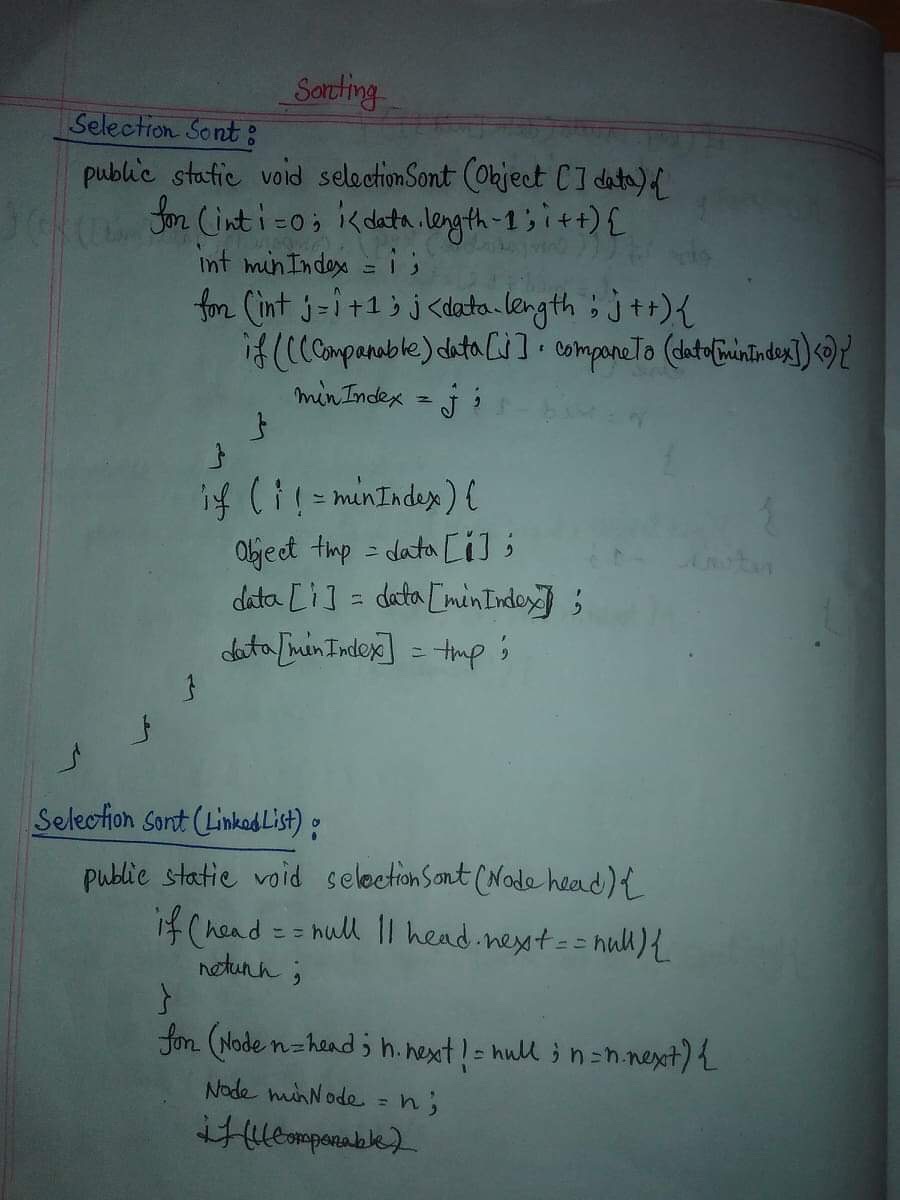 Sorting
Selection Sort :
public static void selectionSort (Object [] data){
for (int i=0 ; i<data.length-1 ; i++){
int minIndex = i ;
for (int j=i+1 ; j<data.length ; j++){
if(((Comparable)data[j].compareTo (data[minIndex])<0){
minIndex = j ;
}
}
if (i != minIndex){
Object tmp = data[i] ;
data[i] = data[minIndex] ;
data[minIndex] = tmp ;
}
}
}
Selection Sort (LinkedList) :
public static void selectionSort (Node head){
if (head == null || head.next == null){
return ;
}
for (Node n=head ; n.next != null ; n=n.next){
Node minNode = n ;
if(((Comparable)